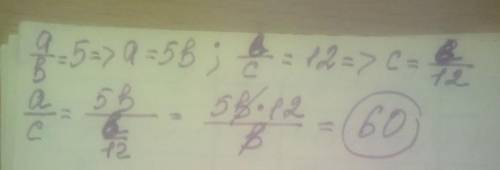 a/b = 5 => a = 5b ; b/c = 12 => c = b/12
a/c = 5b/(b/12) = 5b·12/b = 60